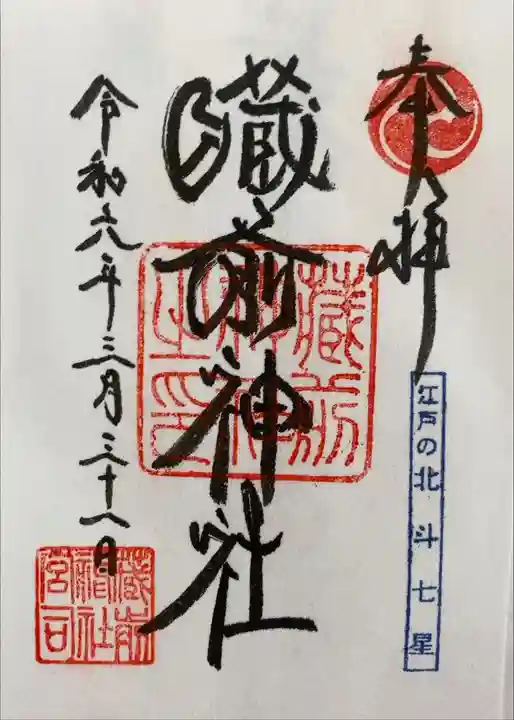 奉拝
江戸の北斗七星
藏前神社
藏前神社之印
令和六年三月三十八日
藏前神社宮司